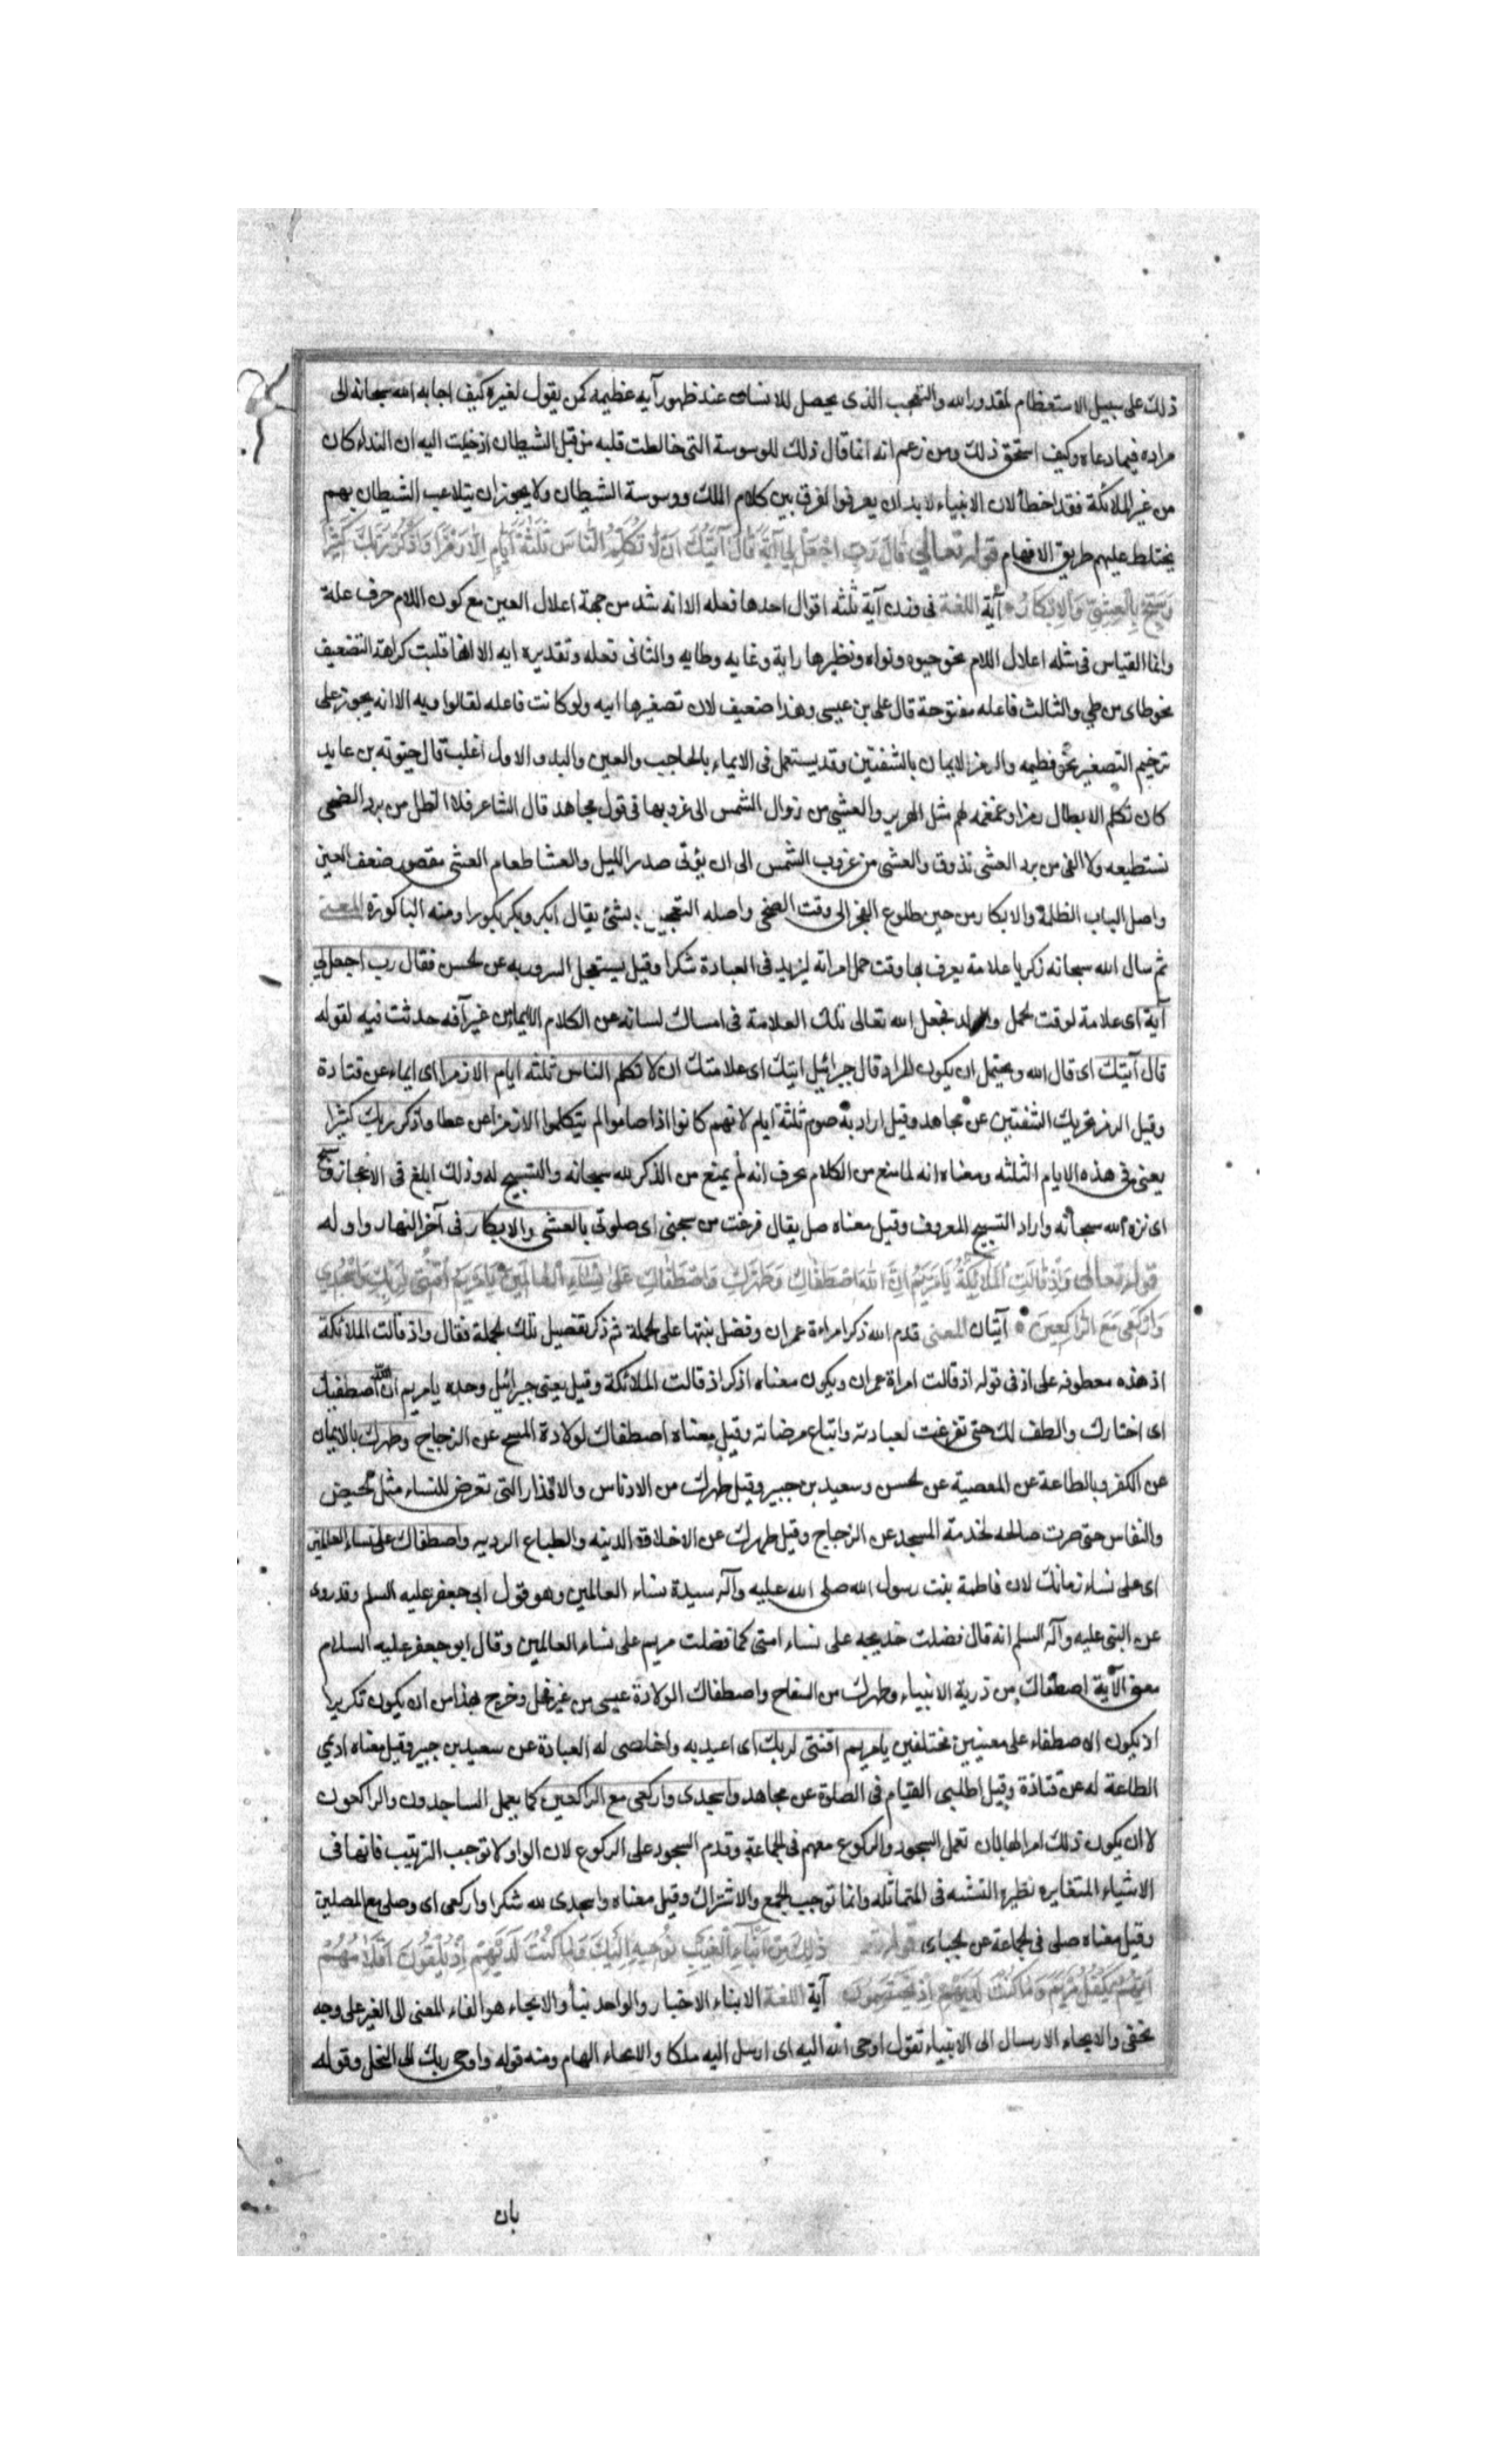 ذلك على سبيل الاستعظام لمقدور الله والتعجب الذى يحصل للانسان عند ظهور آيه عظيمه كمن يقول لغيره كيف اجابه الله سبحانه الى
مراده فيما دعاه وكيف استحق ذلك ومن زعم انه انما قال ذلك للوسوسة التى خالطت قلبه من قبل الشيطان اذ خيلت اليه ان النداء كان
من غير الملائكة فقد اخطأ لان الانبياء لابد ان يعرفوا الفرق بين كلام الملك ووسوسة الشيطان ولا يجوز ان يتلاعب الشيطان بهم
يختلط عليهم طريق الافهام قوله تعالى قَالَ رَبِّ اجْعَلْ لِي آيَةً قَالَ آيَتُكَ اَنْ لَا تُكَلِّمَ النَّاسَ ثَلٰثَةَ اَيَّامٍ اِلَّا رَمْزًا وَاذْكُرْ رَبَّكَ كَثِيرًا
وَسَبِّحْ بِالْعَشِيِّ وَالْاِبْكَارِ آية اللغة فى وزن آية ثلثه اقوال احدها فعله الا انه شد من جهة اعلال العين مع كون اللام حرف علة
وانما القياس فى مثله اعلال اللام نحو حيوه ونواه ونظيرها راية وغايه وطايه والثانى فعله وتقديره ايه الا انها قلبت كراهة التضعيف
نحو طاى من طي والثالث فاعله منقوحة قال على بن عيسى وهذا ضعيف لان تصغيرها اييه ولو كانت فاعله لقالوا ويه الا انه يجوز على
ترخيم التصغير نحو فطيمه والرمز الايماء بالشفتين وقد يستعمل فى الايماء بالحاجب والعين واليد والاول اغلب قال جؤيه بن عايد
كان تكلم الابطال رمزا وغمغمه لهم مثل الهرير والعشى من زوال الشمس الى غروبها فى قول مجاهد قال الشاعر فلا الظل من برد الضحى
تستطيعه ولا الفى من برد العشى تذوق والعشى من غروب الشمس الى ان يؤتى صدر الليل والعشا طعام العشى مقصور ضعف العين
واصل الباب الظلمة والابكار من حين طلوع الفجر الى وقت الضحى واصله التعجيل بشئ يقال ابكر وبكر بكورا ومنه الباكورة المعنى
ثم سال الله سبحانه زكريا علامة يعرف بها وقت حمل امراته ليزيد فى العبادة شكرا وقيل يستعجل السرور به عن الحسن فقال رب اجعل لي
آية اى علامة لوقت الحمل والولد فجعل الله تعالى تلك العلامة فى امساك لسانه عن الكلام الا ايماء من غير آفه حدثت فيه لقوله
قال آيتك اى قال الله ويحتمل ان يكون المراد قال جبرائيل ايتك اى علامتك ان لا تكلم الناس ثلثه ايام الا رمزا اى ايماء عن قتادة
وقيل الرمز تحريك الشفتين عن مجاهد وقيل اراد به صوم ثلثة ايام لانهم كانوا اذا صاموا لم يتكلموا الا رمزا عن عطا واذكر ربك كثيرا
يعنى فى هذه الايام الثلثه ومعناه انه لما منع من الكلام عرف انه لم يمنع من الذكر لله سبحانه والتسبيح له وذلك ابلغ فى الاعجاز وسبح
اى نزه الله سبحانه واراد التسبيح المعروف وقيل معناه صل يقال فرغت من سبحتى اى صلوتى بالعشى والابكار فى آخر النهار واوله
قوله تعالى وَاِذْ قَالَتِ الْمَلٰئِكَةُ يَا مَرْيَمُ اِنَّ اللهَ اصْطَفٰاكِ وَطَهَّرَكِ وَاصْطَفٰاكِ عَلٰى نِسَاءِ الْعٰالَمِينَ يَا مَرْيَمُ اقْنُتِى لِرَبِّكِ وَاسْجُدِى
وَارْكَعِى مَعَ الرَّاكِعِينَ آيتان المعنى قدم الله ذكر امراءة عمران وفضل بنتها على الجملة ثم ذكر تفصيل تلك الجملة فقال واذ قالت الملائكة
اذ هذه معطوفه على اذ فى قوله اذ قالت امراة عمران ويكون معناه اذكر اذ قالت الملائكة وقيل يعنى جبرائيل وحده يا مريم ان الله اصطفيك
اى اختارك والطف لك حتى تفرغت لعبادته واتباع مرضاته وقيل معناه اصطفاك لولادة المسيح عن الزجاج وطهرك بالايمان
عن الكفر وبالطاعة عن المعصية عن الحسن وسعيد بن جبير وقيل طهرك من الادناس والاقذار التى تعرض للنساء مثل الحيض
والنفاس حتى صرت صالحه لخدمة المسجد عن الزجاج وقيل طهرك عن الاخلاق الدنيه والطباع الرديه واصطفاك على نساء العالمين
اى على نساء زمانك لان فاطمة بنت رسول الله صلى الله عليه وآله سيدة نساء العالمين وهو قول ابى جعفر عليه السلم وقد روى
عن النبى عليه وآله السلم انه قال فضلت خديجه على نساء امتى كما فضلت مريم على نساء العالمين وقال ابو جعفر عليه السلام
معنى الآية اصطفاك من ذرية الانبياء وطهرك من السفاح واصطفاك لولادة عيسى من غير فحل وخرج بهذا من ان يكون تكريرا
اذ يكون الاصطفاء على معنيين مختلفين يا مريم اقنتى لربك اى اعبديه واخلصى له العبادة عن سعيد بن جبير وقيل معناه اديمي
الطاعة له عن قتادة وقيل اطلبى القيام فى الصلوة عن مجاهد واسجدى واركعى مع الراكعين كما يعمل الساجدون والراكعون
لا ان يكون ذلك امرا لها بان تعمل السجود والركوع معهم فى الجماعة وقدم السجود على الركوع لان الواو لا توجب الترتيب فانها فى
الاشياء المتغايره نظيرة التثنيه فى المتماثله وانما توجب الجمع والاشتراك وقيل معناه واسجدى لله شكرا واركعى اى وصلى مع المصلين
وقيل معناه صلى فى الجماعة عن الجبائى قوله ذٰلِكَ مِنْ اَنْبٰاءِ الْغَيْبِ نُوحِيهِ اِلَيْكَ وَمٰا كُنْتَ لَدَيْهِمْ اِذْ يُلْقُونَ اَقْلٰامَهُمْ
اَيُّهُمْ يَكْفُلُ مَرْيَمَ وَمَا كُنْتَ لَدَيْهِمْ اِذْ يَخْتَصِمُونَ آية اللغة الانباء الاخبار والواحد نبأ والايحاء هو القاء المعنى الى الغير على وجه
يخفى والايحاء الارسال الى الانبياء تقول اوحى الله اليه اى ارسل اليه ملكا والايحاء الهام ومنه قوله واوحى ربك الى النحل وقوله
بان